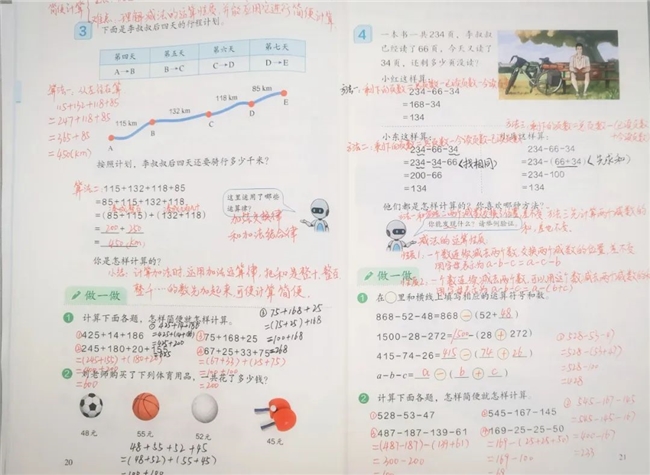 简便计算
难点：理解减法的运算性质，并能应用它进行简便计算
3
下面是李叔叔后四天的行程计划。
第四天 第五天 第六天 第七天
A→B B→C C→D D→E
算法一：从左往右算
115+132+118+85
=247+118+85
=365+85
=450(km)
115 km
132 km
118 km
85 km
A
B
C
D
E
按照计划，李叔叔后四天还要骑行多少千米？
算法二：115+132+118+85
=85+115+132+118
=(85+115)+(132+118)
=200+250
=450(km)
这里运用了哪些
运算律？
加法交换律
和加法结合律
你是怎样计算的？
小结：计算加法时，运用加法运算律，把和是整十、整百
整千…的数先加起来，可使计算简便。
做一做
1 计算下面各题，怎样简便就怎样计算。
425+14+186
75+168+25
245+180+20+155
67+25+33+75
③75+168+25
=(75+25)+168
=100+168
=268
=(245+155)+(180+20)
=400+200
=600
=(67+33)+(25+75)
=100+100
=200
2 刘老师购买了下列体育用品，一共花了多少钱？
48元
55元
52元
45元
48+55+52+45
=(48+52)+(55+45)
=100+100
20
4
一本书一共234页，李叔叔
已经读了66页，今天又读了
34页，还剩多少页没读？
小红这样算：
234-66-34
=168-34
=134
小东这样算：
234-66-34
=234-34-66
=200-66
=134
这样算：
234-66-34
=234-(66+34)
=234-100
=134
(先求和)
他们都是怎样计算的？你喜欢哪种方法？
你能发现什么？请举例验证。
减法的运算性质
a-b-c=a-c-b
a-b-c=a-(b+c)
做一做
1 在○里和横线上填写相应的运算符号和数。
868-52-48=868-(52+48)
1500-28-272=1500-(28+272)
415-74-26=415-(74+26)
a-b-c=a-(b+c)
②528-53-47
=528-(53+47)
=528-100
=428
2 计算下面各题，怎样简便就怎样计算。
528-53-47
545-167-145
487-187-139-61
169-25-25-50
=(487-187)-(139+61)
=300-200
=169-(25+25+50)
=169-100
545-167-145
=545-145-167
=400-167
=233
21